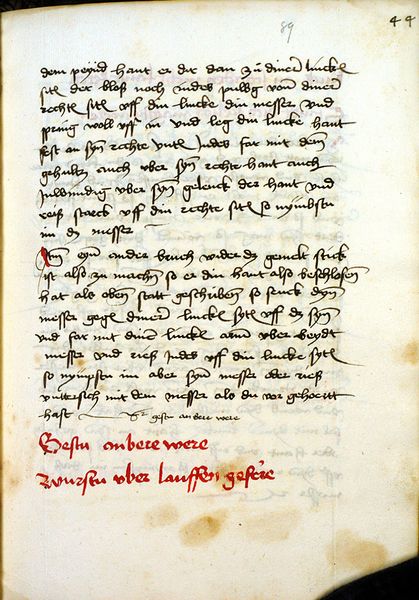 89
44
dem peyid hant er dir dan zu diner linckē
sitē der bloß noch indes pulbg von diner
rechtē sitē vff din lincke din messer vnd
spring woll vff in vnd leg din lincke hant
fest an syn rechte vntē Indes far mit dem
gehultz auch vber syn rechte hant auch
Inwindig vber syn gelenck der hant vnd
reiß starck vff din rechte sitē so nymbstu
im dz messer
Itm eyn ander bruch wider dz gemelt stuck
ist also zu machen so er din hant also beschloßen
hat als oben statt geschriben so senck dyn
messer gegē dinerē linckē sytē vff dz syn
vnd far mit dinē linckē arm vber beydt
messer vnd rieß Indes vff din lincke sytē
so nympstu im aber syn messer oder rieß
vntersich mit dem messer als du vor gehortt
hast gestu andere were
Gestu anderewere
Wurstu vber lauffen gefere